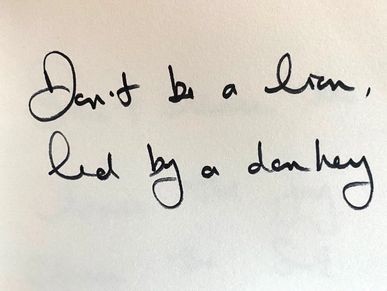 Don't be a lion,
led by a donkey